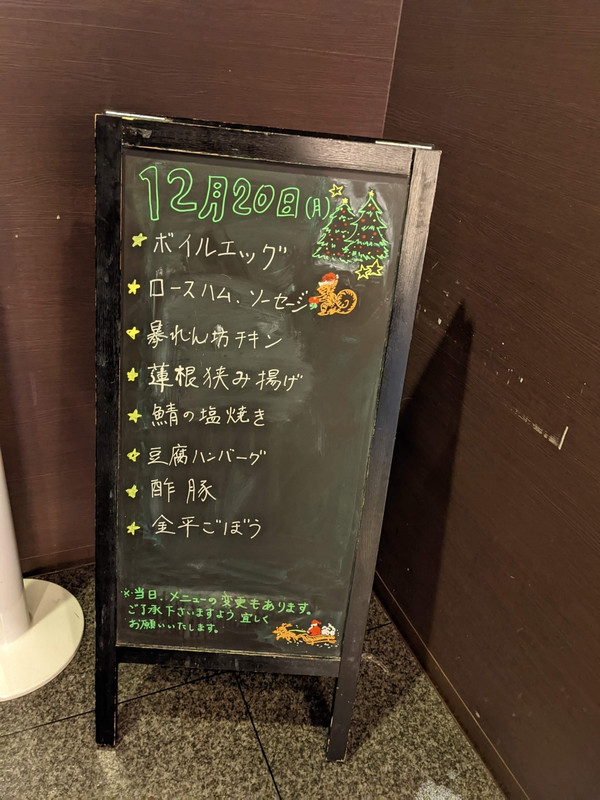 12月20日(月)
ボイルエッグ
ロースハム、ソーセージ
暴れん坊チキン
蓮根挟み揚げ
鯖の塩焼き
豆腐ハンバーグ
酢豚
金平ごぼう
※当日、メニューの変更もあります。
ご了承下さいますよう、宜しく
お願いいたします。